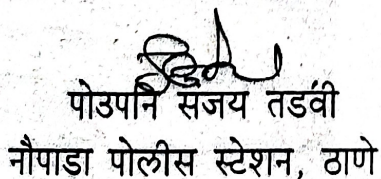 पोउपनि संजय तडवी
नौपाडा पोलीस स्टेशन, ठाणे